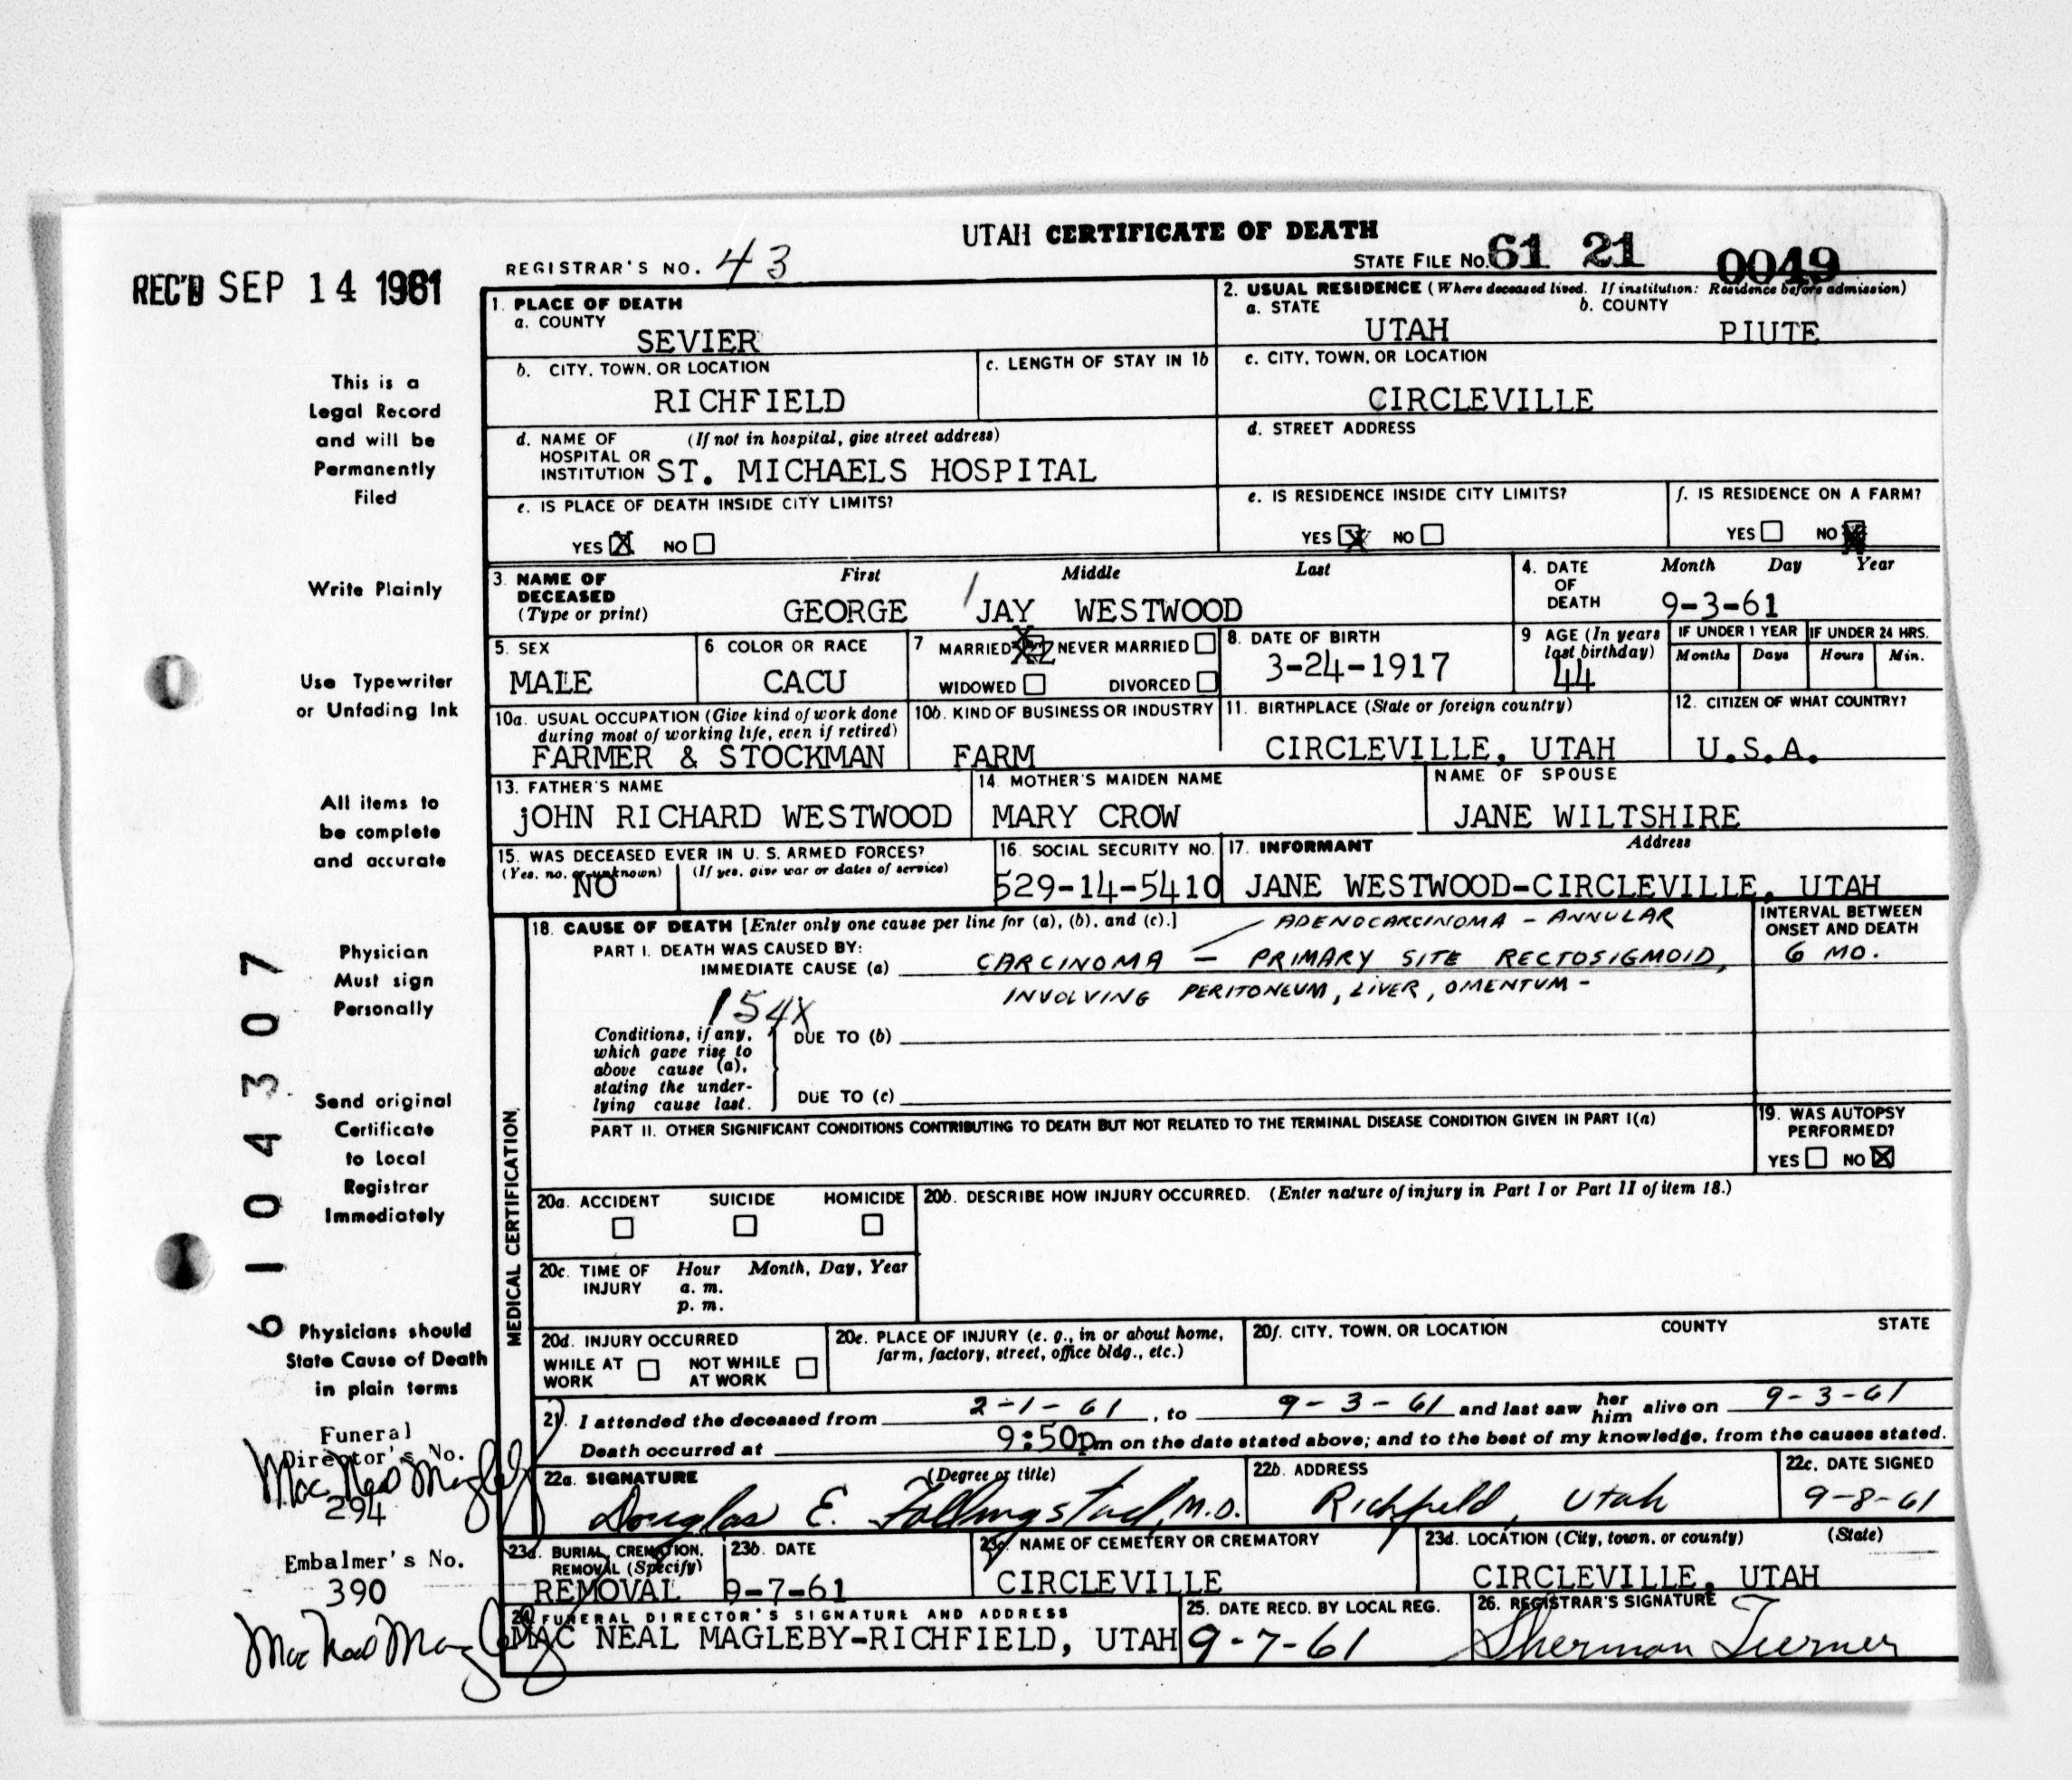 UTAH CERTIFICATE OF DEATH
REC'D SEP 14 1961
REGISTRAR'S NO. 43
STATE FILE NO. 61 21 0049
1. PLACE OF DEATH
a. COUNTY
SEVIER
2. USUAL RESIDENCE (Where deceased lived. If institution: Residence before admission)
a. STATE
UTAH
b. COUNTY
PIUTE
b. CITY, TOWN, OR LOCATION
RICHFIELD
c. LENGTH OF STAY IN 1b
c. CITY, TOWN, OR LOCATION
CIRCLEVILLE
d. NAME OF HOSPITAL OR INSTITUTION (If not in hospital, give street address)
ST. MICHAELS HOSPITAL
d. STREET ADDRESS
e. IS PLACE OF DEATH INSIDE CITY LIMITS?
YES X NO
e. IS RESIDENCE INSIDE CITY LIMITS?
YES X NO
f. IS RESIDENCE ON A FARM?
YES NO X
3. NAME OF DECEASED (Type or print)
First Middle Last
GEORGE JAY WESTWOOD
4. DATE OF DEATH Month Day Year
9-3-61
5. SEX
MALE
6. COLOR OR RACE
CACU
7 MARRIED X NEVER MARRIED
WIDOWED DIVORCED
8. DATE OF BIRTH
3-24-1917
9 AGE (In years last birthday)
44
IF UNDER 1 YEAR
Months Days
IF UNDER 24 HRS.
Hours Min.
10a. USUAL OCCUPATION (Give kind of work done during most of working life, even if retired)
FARMER & STOCKMAN
10b. KIND OF BUSINESS OR INDUSTRY
FARM
11. BIRTHPLACE (State or foreign country)
CIRCLEVILLE, UTAH
12. CITIZEN OF WHAT COUNTRY?
U.S.A.
13. FATHER'S NAME
jOHN RICHARD WESTWOOD
14. MOTHER'S MAIDEN NAME
MARY CROW
NAME OF SPOUSE
JANE WILTSHIRE
15. WAS DECEASED EVER IN U. S. ARMED FORCES?
(Yes, no, or unknown) (If yes, give war or dates of service)
NO
16. SOCIAL SECURITY NO.
529-14-5410
17. INFORMANT Address
JANE WESTWOOD-CIRCLEVILLE, UTAH
MEDICAL CERTIFICATION
18. CAUSE OF DEATH [Enter only one cause per line for (a), (b), and (c).]
ADENOCARCINOMA - ANNULAR
PART I. DEATH WAS CAUSED BY:
IMMEDIATE CAUSE (a) CARCINOMA — PRIMARY SITE RECTOSIGMOID,
INVOLVING PERITONEUM, LIVER, OMENTUM -
INTERVAL BETWEEN ONSET AND DEATH
6 MO.
154X
Conditions, if any, which gave rise to above cause (a), stating the underlying cause last.
DUE TO (b)
DUE TO (c)
PART II. OTHER SIGNIFICANT CONDITIONS CONTRIBUTING TO DEATH BUT NOT RELATED TO THE TERMINAL DISEASE CONDITION GIVEN IN PART I(a)
19. WAS AUTOPSY PERFORMED?
YES NO X
20a. ACCIDENT SUICIDE HOMICIDE
20b. DESCRIBE HOW INJURY OCCURRED. (Enter nature of injury in Part I or Part II of item 18.)
20c. TIME OF INJURY Hour Month, Day, Year
a. m.
p. m.
20d. INJURY OCCURRED
WHILE AT WORK NOT WHILE AT WORK
20e. PLACE OF INJURY (e. g., in or about home, farm, factory, street, office bldg., etc.)
20f. CITY, TOWN, OR LOCATION COUNTY STATE
21. I attended the deceased from 2-1-61, to 9-3-61 and last saw her him alive on 9-3-61
Death occurred at 9:50pm on the date stated above; and to the best of my knowledge, from the causes stated.
22a. SIGNATURE (Degree or title)
Douglas E. Follingstad, M.D.
22b. ADDRESS
Richfield, Utah
22c. DATE SIGNED
9-8-61
23a. BURIAL, CREMATION, REMOVAL (Specify)
REMOVAL
23b. DATE
9-7-61
23c. NAME OF CEMETERY OR CREMATORY
CIRCLEVILLE
23d. LOCATION (City, town, or county) (State)
CIRCLEVILLE, UTAH
24. FUNERAL DIRECTOR'S SIGNATURE AND ADDRESS
MAC NEAL MAGLEBY-RICHFIELD, UTAH
25. DATE RECD. BY LOCAL REG.
9-7-61
26. REGISTRAR'S SIGNATURE
Sherman Turner
This is a
Legal Record
and will be
Permanently
Filed
Write Plainly
Use Typewriter
or Unfading Ink
All items to
be complete
and accurate
Physician
Must sign
Personally
Send original
Certificate
to Local
Registrar
Immediately
Physicians should
State Cause of Death
in plain terms
Funeral
Director's No.
Mac Neal Magleby
294
Embalmer's No.
390
Mac Neal Magleby
6104307